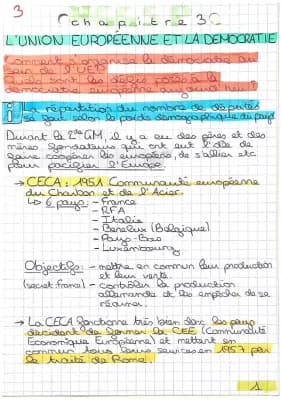 3
Chapitre 3
L'UNION EUROPÉENNE ET LA DEMOCRATIE
Comment s'organise la démocratie au
sein de l'UE ?
Quels sont les défis posés à la
démocratie européenne aujourd'hui ?
La répartition du nombre de députés
se fait selon le poids démographique du pays
Durant la 2nde GM, il y a eu des pères et des
mères fondateurs qui ont eut l'idée de
faire coopérer les européens, de s'allier etc
pour pacifier l'Europe
→ CECA : 1951 Communauté européenne
du Charbon et de l'Acier.
↳ 6 pays : - France
- RFA
- Italie
- Benelux (Belgique)
- Pays-Bas
- Luxembourg
Objectifs : - mettre en commun leur production
et leur vente.
(secret franç) - contrôler la production
allemande et les empêcher de se
réarmer.
→ La CECA fonctionne très bien donc les pays
décident de former la CEE (Communauté
Economique Européenne) et mettent en
commun tous leurs services en 1957 par
le traité de Rome.
1